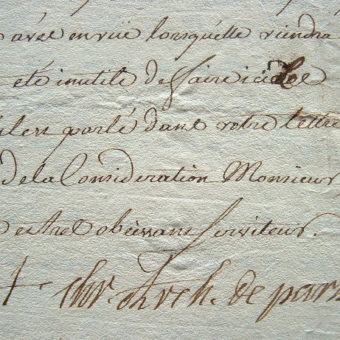 avoé en vüe lorsquelle viendra
eté inutile de faire ici de
parlé dans votre lettre
de la Consideration Monsieur
et tres obéissant serviteur.
+ chr. arch. de paris